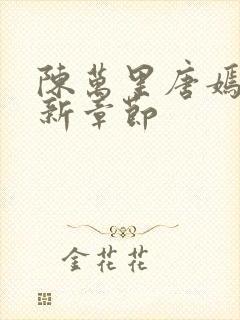 陳萬里唐嫣
新章節
金花花